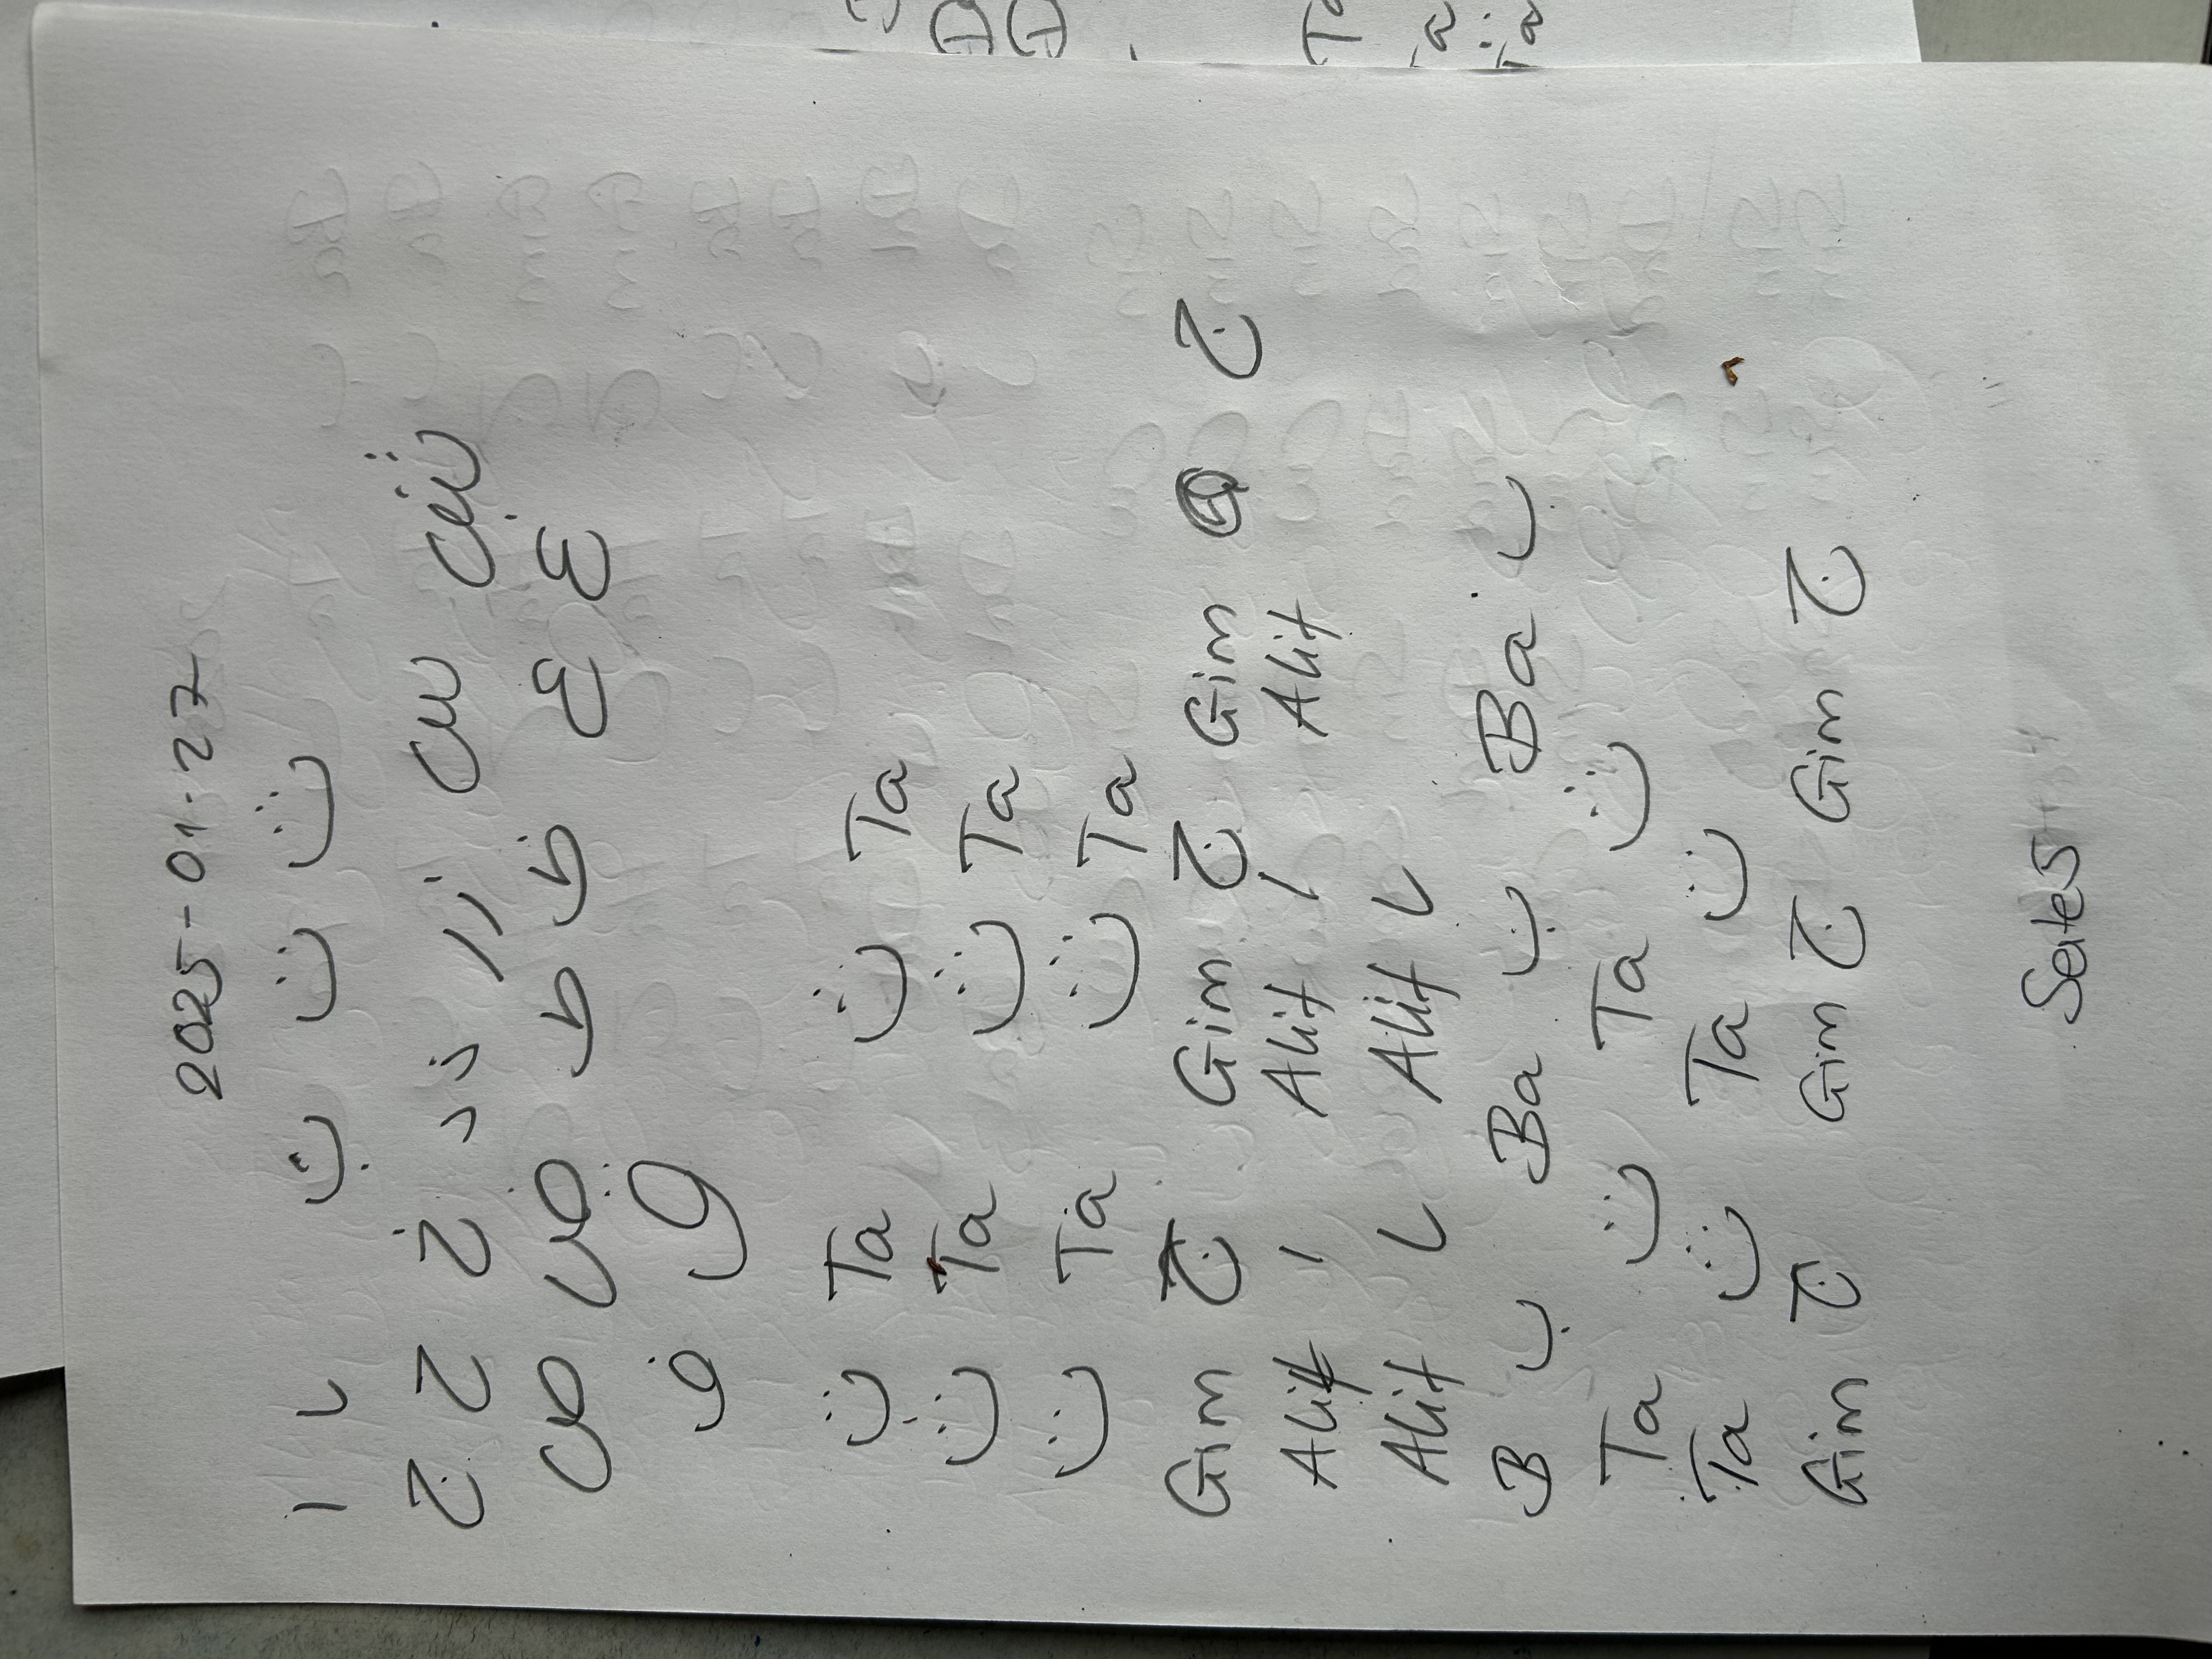 2025-01-27
ا ب ت ث
ج ح خ د ذ ر ز س ش
ص ض ط ظ ع غ
ف ق
ت Ta ت Ta
ث Ta ث Ta
ث Ta ث Ta
Gim ج Gim ج Gim ج
Alif ا Alif ا Alif
Alif Alif
B ب Ba ب Ba ب
Ta ت Ta ت
Ta ت Ta ت
Gim ج Gim ج Gim ج